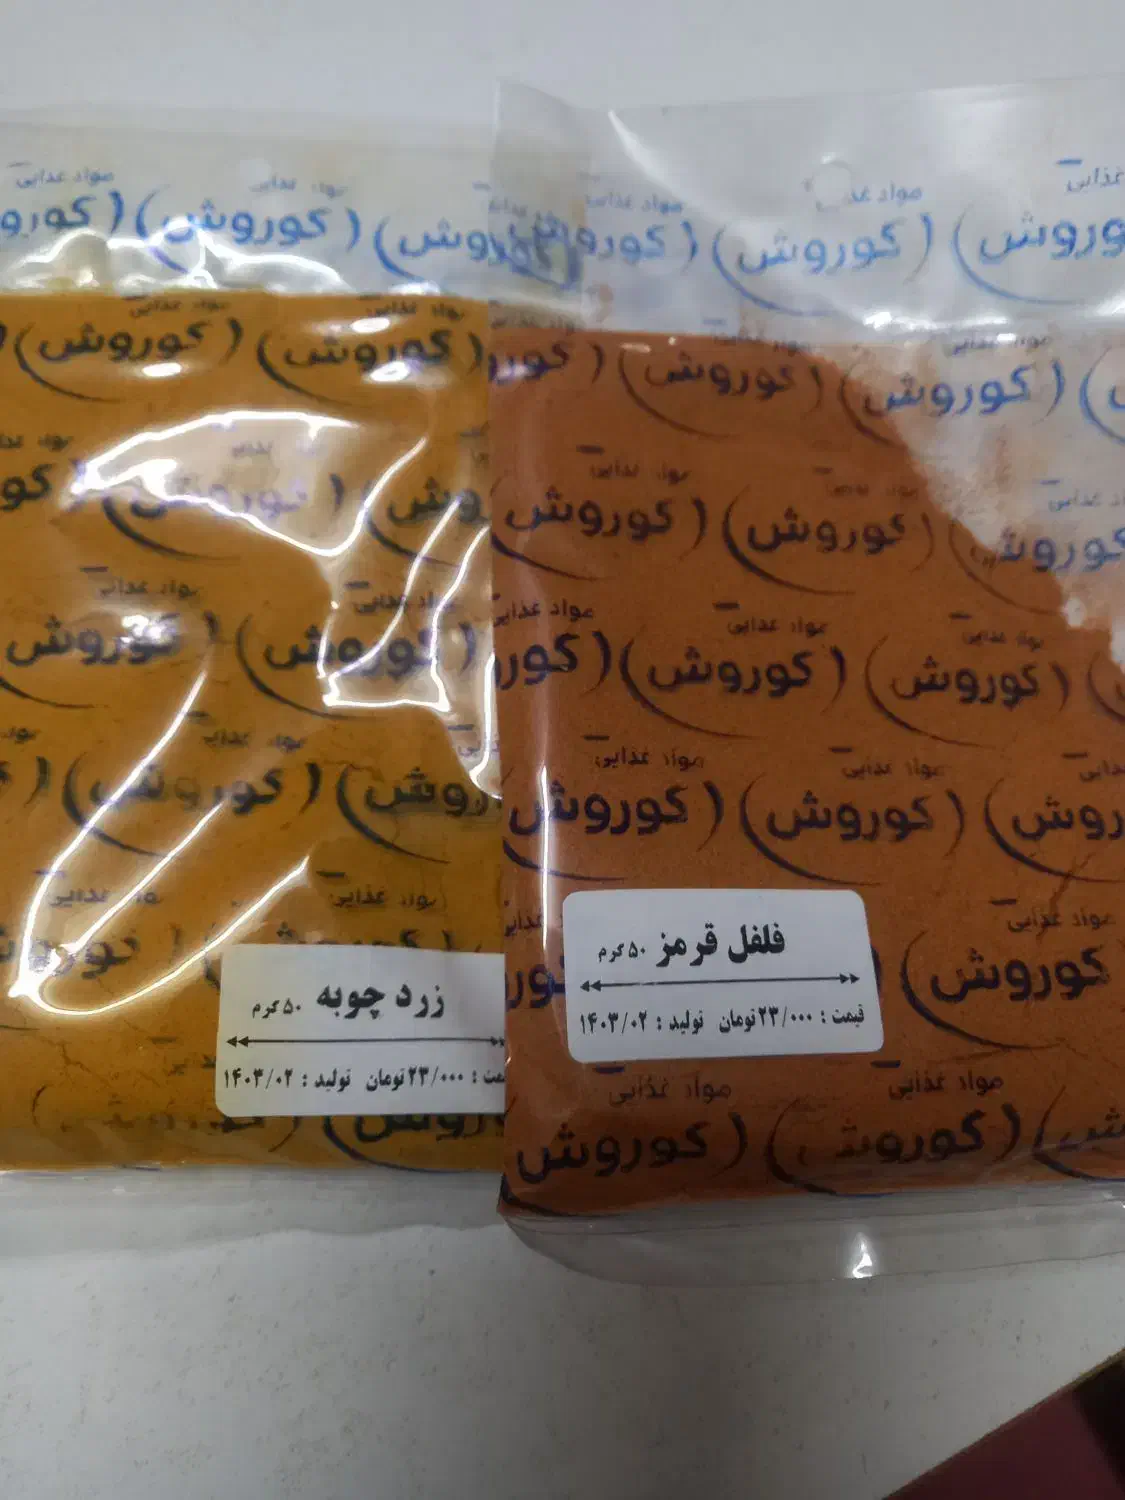 مواد غذایی
کوروش
زرد چوبه ۵۰ گرم
قیمت : ۲۳/۰۰۰ تومان تولید : ۱۴۰۳/۰۲
مواد غذایی
کوروش
فلفل قرمز ۵۰ گرم
قیمت : ۲۳/۰۰۰ تومان تولید : ۱۴۰۳/۰۲